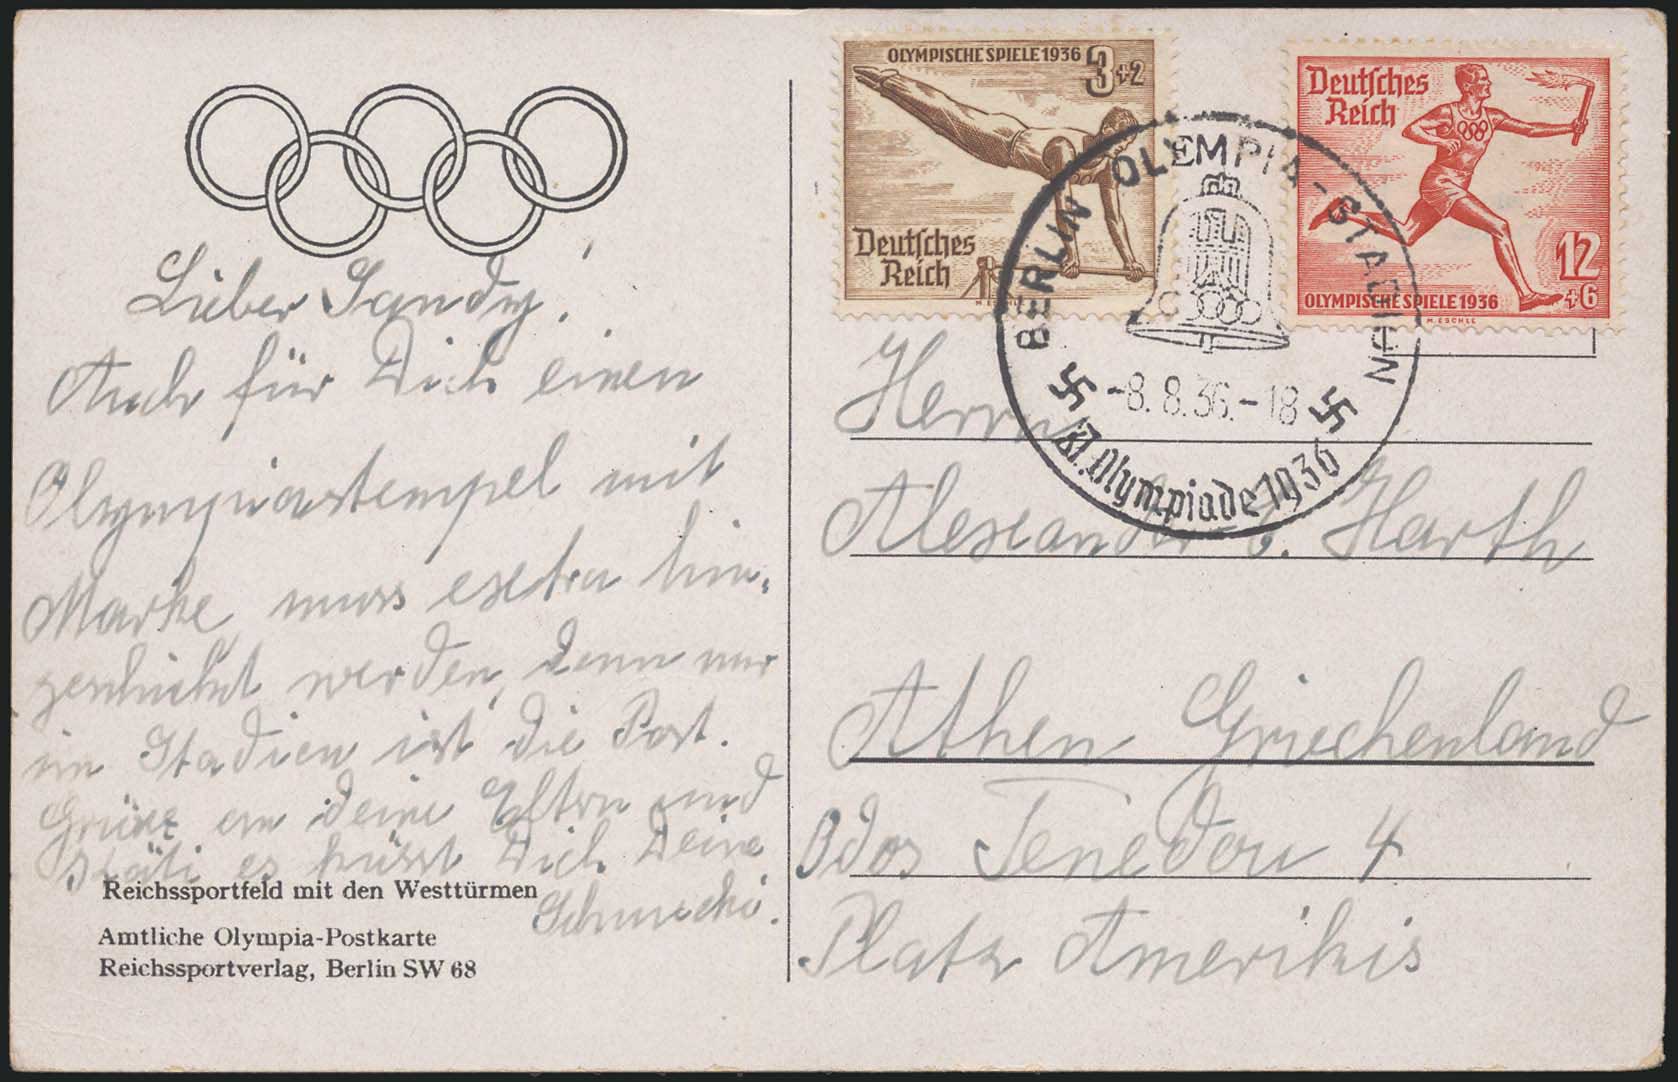 Lieber Sandy!
Auch für Dich einen
Olympiastempel mit
Marke, muss extra hin-
geschickt werden, denn nur
im Stadion ist die Post.
Grüsse an Deine Eltern und
es küsst Dich Deine
Reichssportfeld mit den Westtürmen
Amtliche Olympia-Postkarte
Reichssportverlag, Berlin SW 68
OLYMPISCHE SPIELE 1936 3+2
Deutsches
Reich
M. ESCHLE
Deutsches
Reich
12
+6
OLYMPISCHE SPIELE 1936
M. ESCHLE
BERLIN OLYMPIA-STADION
-8.8.36.-18
XI. Olympiade 1936
Herrn
Alexander Harth
Athen Griechenland
Odos Tenedou 4
Platz Amerikis